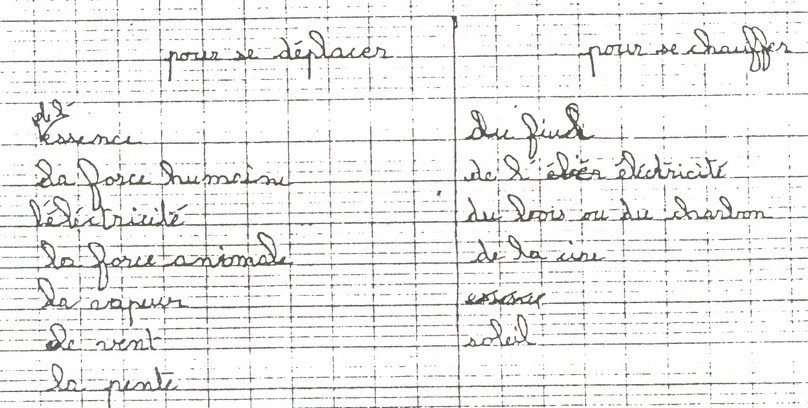 pour se déplacer
pour se chauffer
essence
la force humaine
l'éléctricité
la force animale
la vapeur
le vent
la pente
du fiud
de l' éléctricité
du bois ou du charbon
de la cire
soleil